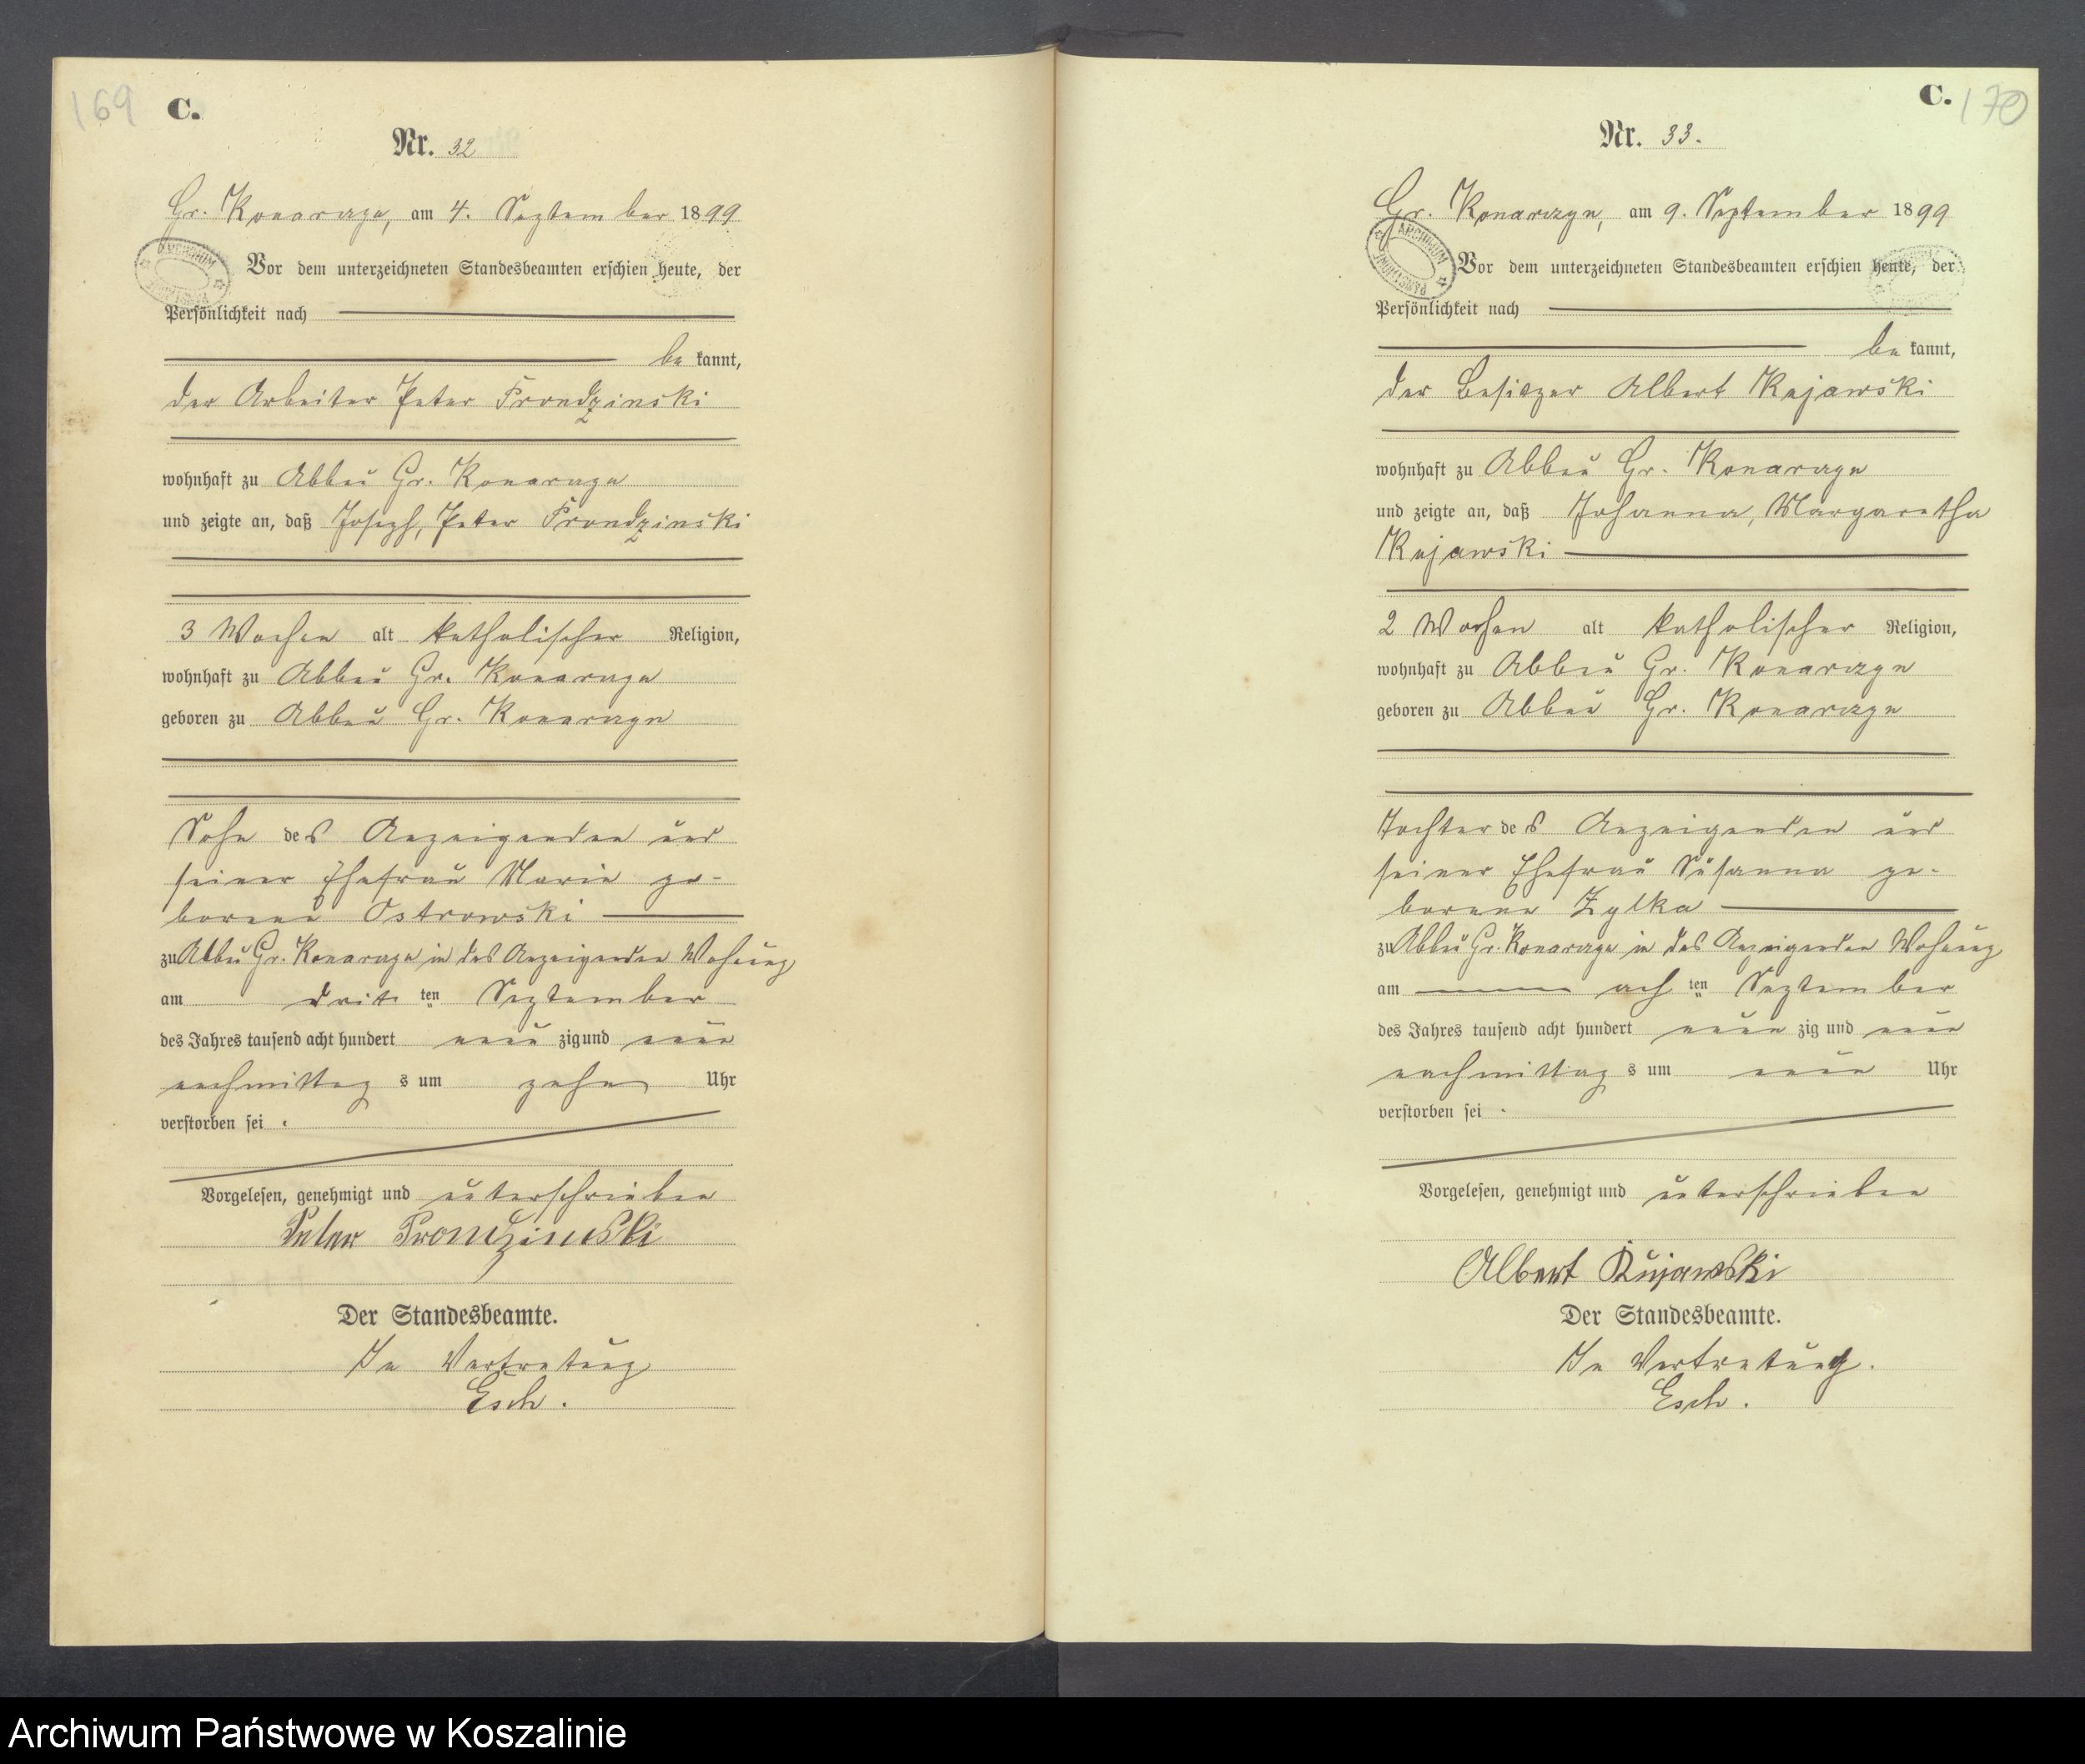 169
C.
Nr. 32
Gr. Konarczyn, am 4. September 1899
Vor dem unterzeichneten Standesbeamten erschien heute, der
Persönlichkeit nach
be kannt,
der Arbeiter Peter Prondzinski
wohnhaft zu Abbau Gr. Konarczyn
und zeigte an, daß Joseph, Peter Prondzinski
3 Wochen alt katholischer Religion,
wohnhaft zu Abbau Gr. Konarczyn
geboren zu Abbau Gr. Konarczyn
Sohn des Anzeigenden und
seiner Ehefrau Marie ge-
borene Ostrowski
zu Abbau Gr. Konarczyn in des Anzeigenden Wohnung
am drit ten September
des Jahres tausend acht hundert neun zig und neun
nachmittag s um zehn Uhr
verstorben sei.
Vorgelesen, genehmigt und unterschrieben
Peter Prondzinski
Der Standesbeamte.
In Vertretung
Esch.
C. 170
Nr. 33.
Gr. Konarczyn, am 9. September 1899
ARCHIWUM PAŃSTWOWE
Vor dem unterzeichneten Standesbeamten erschien heute, der
Persönlichkeit nach
be kannt,
der Besitzer Albert Kujawski
wohnhaft zu Abbau Gr. Konarczyn
und zeigte an, daß Johanna, Margaretha
Kujawski
2 Wochen alt katholischer Religion,
wohnhaft zu Abbau Gr. Konarczyn
geboren zu Abbau Gr. Konarczyn
Tochter des Anzeigenden und
seiner Ehefrau Susanna ge-
borene Zylka
zu Abbau Gr. Konarczyn in des Anzeigenden Wohnung
am ach ten September
des Jahres tausend acht hundert neun zig und neun
nachmittag s um neun Uhr
verstorben sei.
Vorgelesen, genehmigt und unterschrieben
Albert Kujawski
Der Standesbeamte.
In Vertretung.
Esch.
Archiwum Państwowe w Koszalinie